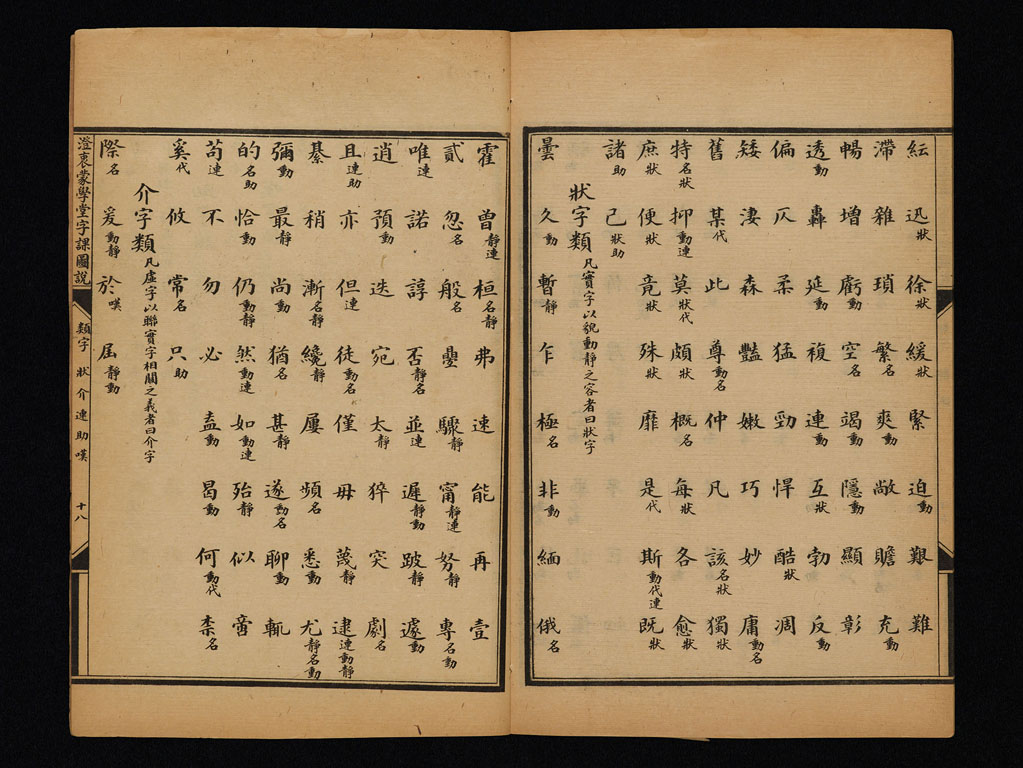 紜 迅狀 徐狀 緩狀 緊 迫動 艱 難
滯 雜 瑣 繁名 爽動 敞 贍 充動
暢 增 虧動 空名 竭動 隱動 顯 彰
透動 轟 延動 複 連動 互狀 勃 反動
偏 仄 柔 猛 勁 悍 酷狀 凋
矮 淒 森 豔 嫩 巧 妙 庸動名
舊 某代 此 尊動名 仲 凡 該名狀 獨狀
特名狀 抑動連 莫狀代 頗狀 概名 每狀 各 愈狀
庶狀 便狀 竟狀 殊狀 靡 是代 斯動代連 既狀
諸助 己狀助
狀字類 凡實字以貌動靜之容者曰狀字
曇 久動 暫靜 乍 極名 非動 緬 俄名
霍 曾靜連 桓名靜 弗 速 能 再 壹
貳 忽名 般名 舋 驟靜 甯靜連 努靜 專名動
唯連 諾 諄 否靜名 並連 遲靜動 跛靜 遽動
逍 預動 迭 宛 太靜 猝 突 劇名
且連助 亦 但連 徒動名 僅 毋 蔑靜 逮連動靜
綦 稍 漸名靜 纔靜 屢 頻名 悉動 尤靜名動
彌動 最靜 尚動 猶名 甚靜 遂動名 聊動 輒
的名助 恰動 仍動靜 然動連 如動連 殆靜 似 啻
苟連 不 勿 必 盍動 曷動 何動代 柰名
奚代 攸 常名 只助
介字類 凡虛字以聯實字相關之義者曰介字
際名 爰動靜 於嘆 屆靜動
澄衷蒙學堂字課圖說
類字 狀介連助嘆 十八